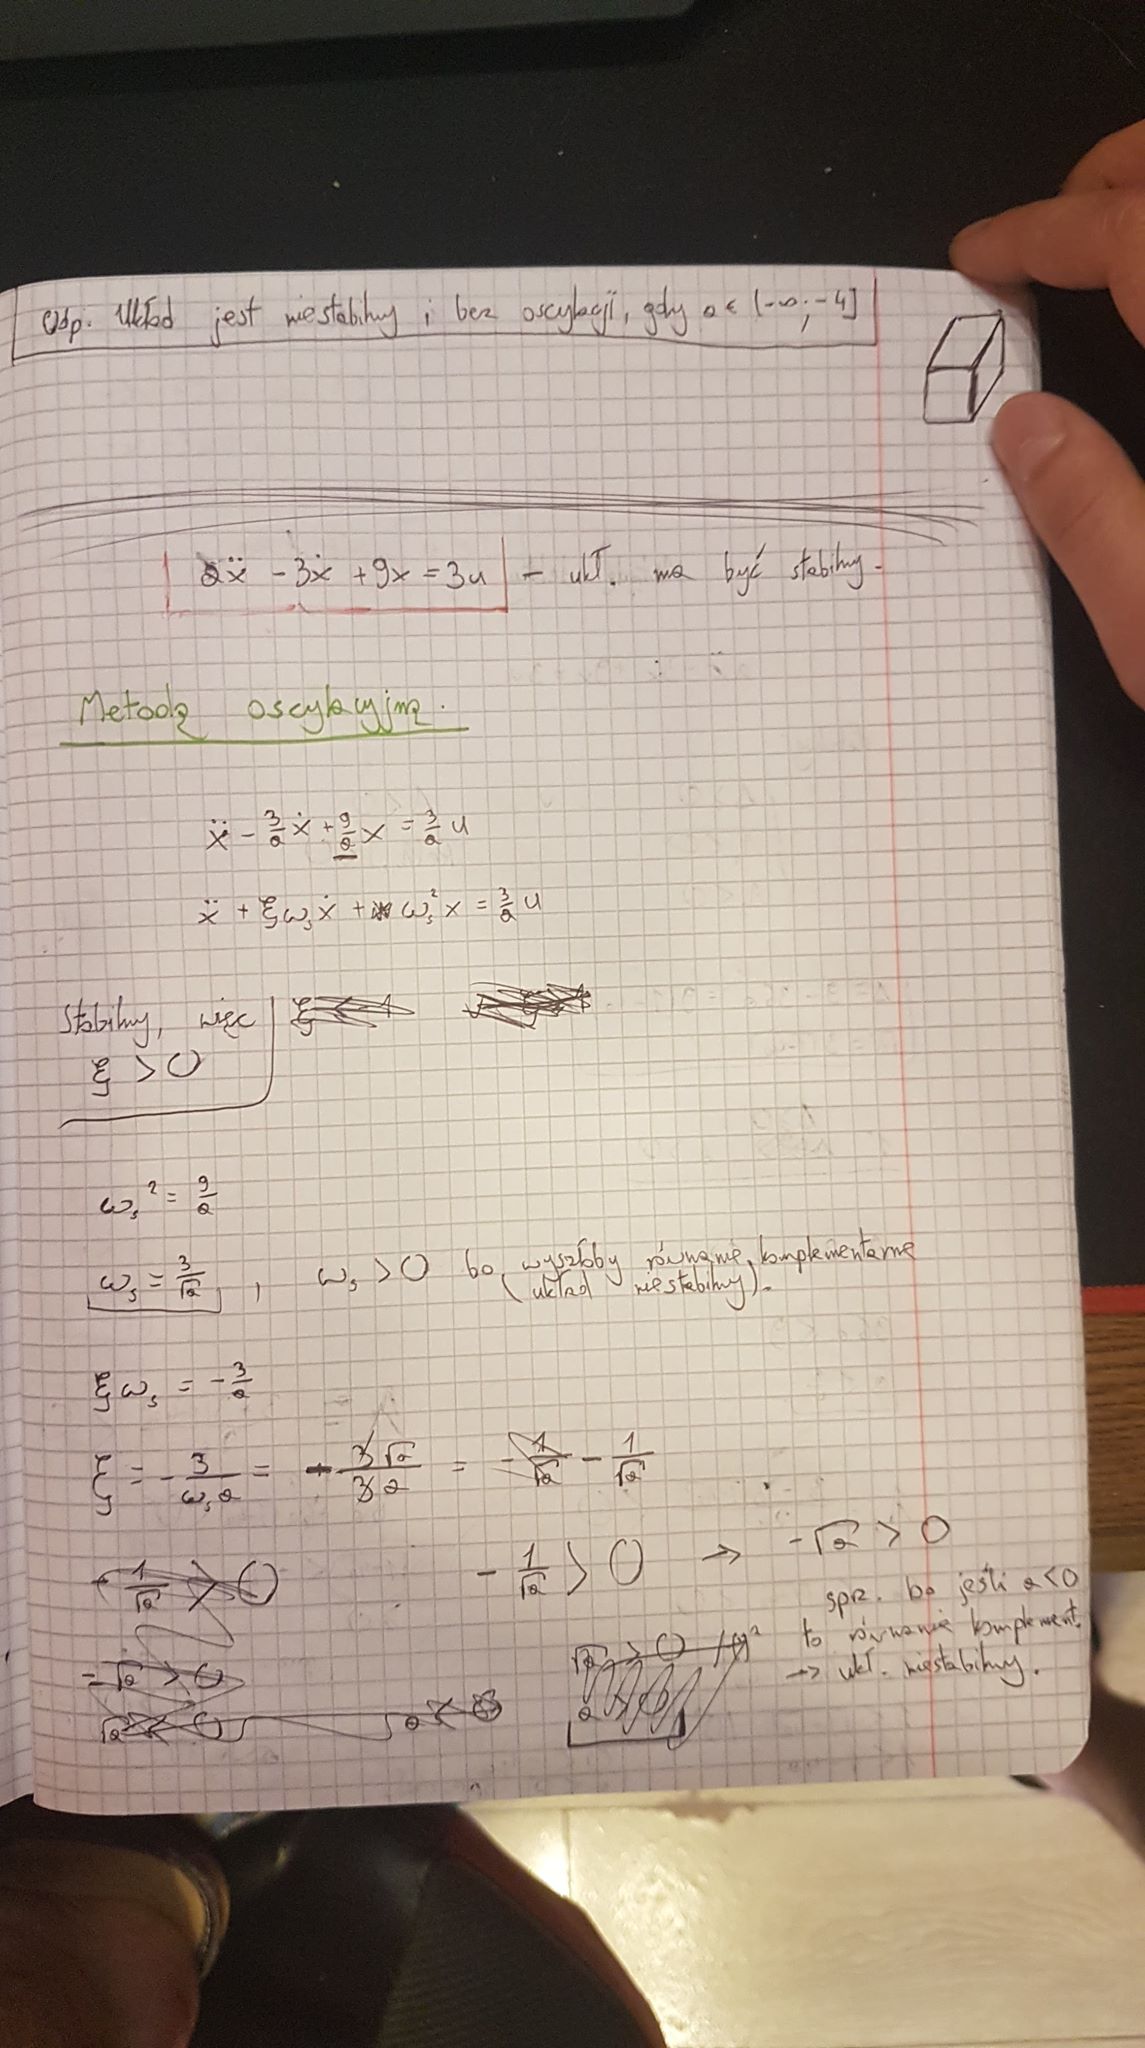 Odp. Układ jest niestabilny i bez oscylacji, gdy a ∈ (-∞; -4]
aẍ - 3ẋ + 9x = 3u - ukł. ma być stabilny.
Metodą oscylacyjną.
ẍ - 3/a ẋ + 9/a x = 3/a u
ẍ + ξωₛẋ + ωₛ²x = 3/a u
Stabilny, więc
ξ > 0
ωₛ² = 9/a
ωₛ = 3/√a , ωₛ > 0 bo wyszłoby równanie komplementarne
(układ niestabilny).
ξωₛ = -3/a
ξ = -3/(ωₛa) = -3√a/(3a) = -1/√a
-1/√a > 0 → -√a > 0
spr. bo jeśli a<0
to równanie komplement.
→ ukł. niestabilny.